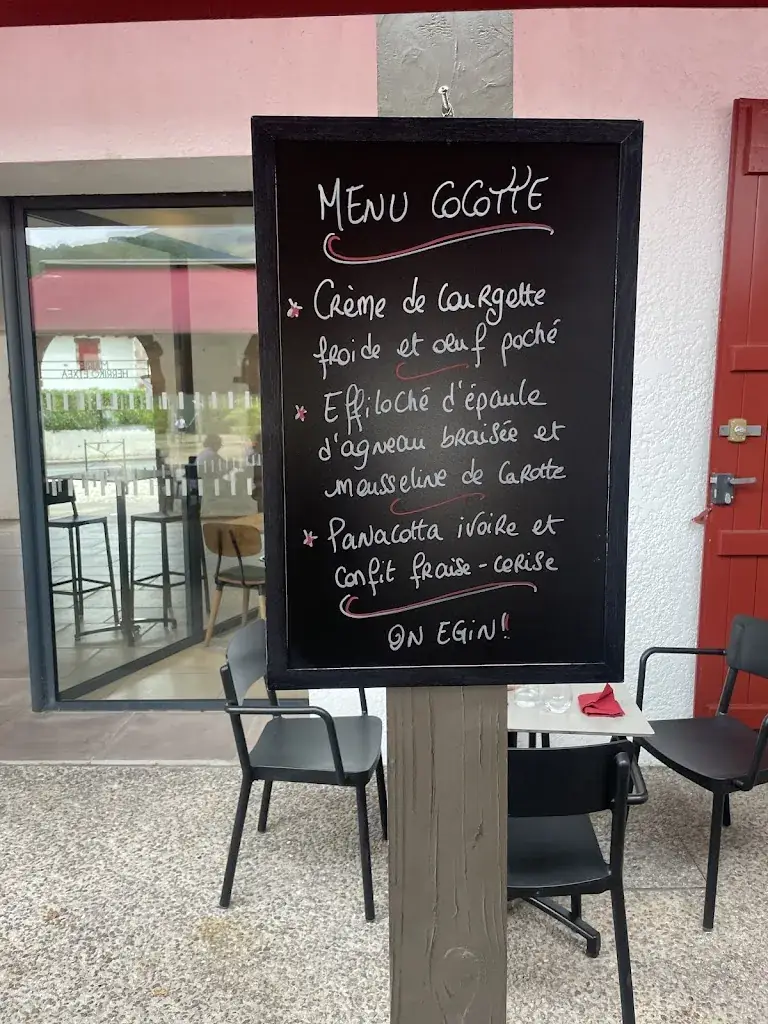 MENU COCOTTE
Crème de courgette
froide et œuf poché
Effiloché d'épaule
d'agneau braisée et
mousseline de carotte
Panacotta ivoire et
confit fraise - cerise
ON EGIN!
MAIRIE
HERRIKO ETXEA